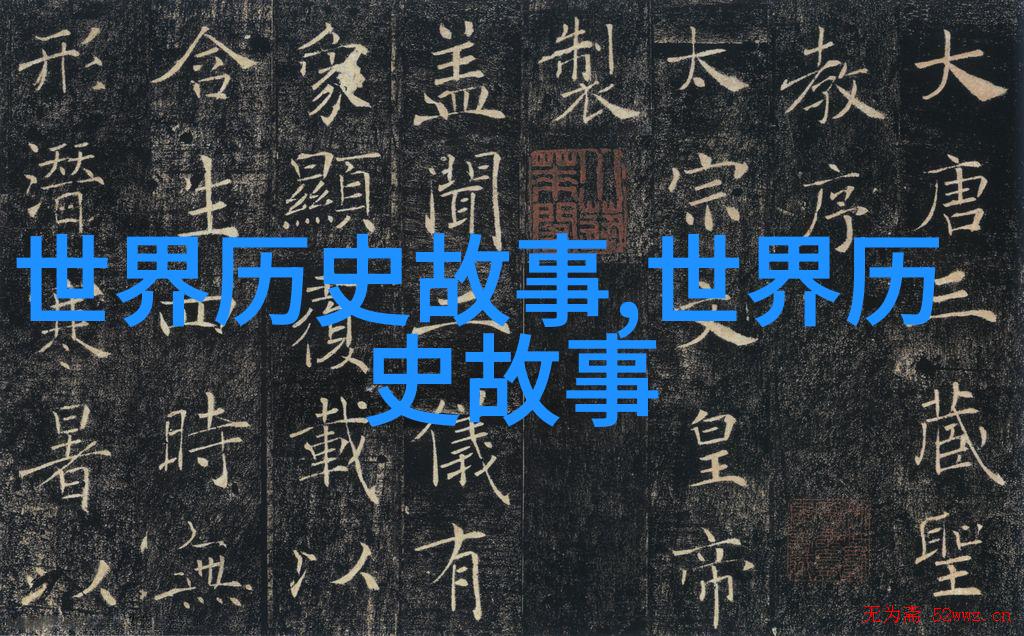 大唐三藏聖
教序
太宗文皇帝
製
盖聞二儀有
象顯覆載以
含生四時無
形潛寒暑以
世界历史故事,世界历
史故事
无为斋 52wwz.cn